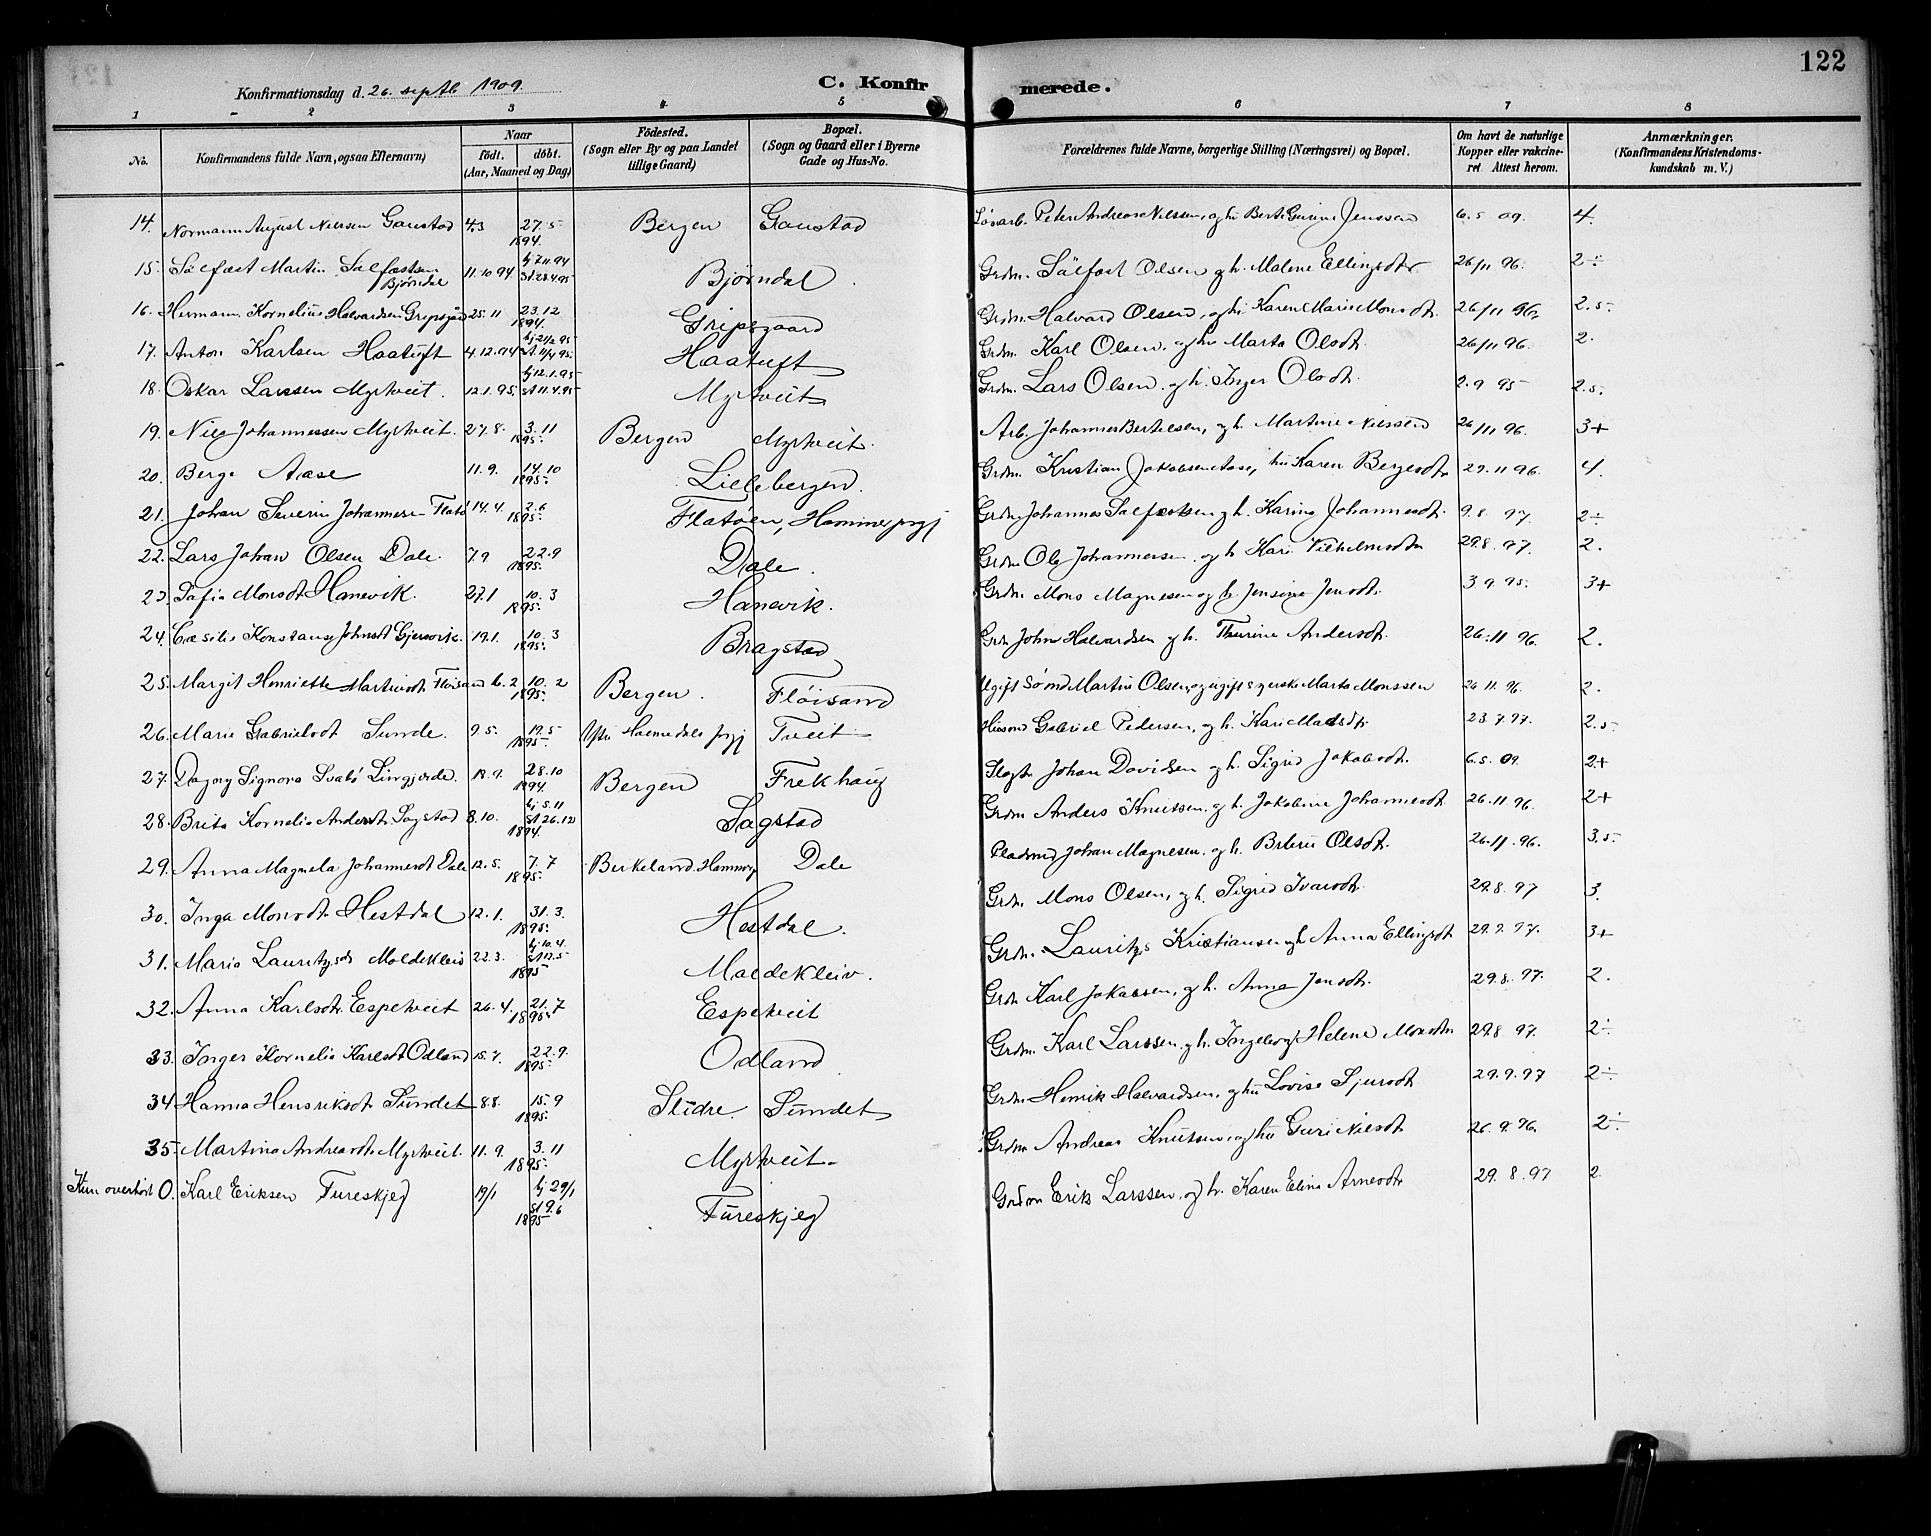 122
Konfirmationsdag d. 26. septb. 1909.
C. Konfirmerede.
1 2 3 4 5 6 7 8
No. Konfirmandens fulde Navn, ogsaa Efternavn) Naar født. døbt. (Aar, Maaned og Dag) Fødested. (Sogn eller By og paa Landet tillige Gaard) Bopæl. (Sogn og Gaard eller i Byerne Gade og Hus-No. Forældrenes fulde Navne, borgerlige Stilling (Næringsvei) og Bopæl. Om havt de naturlige Kopper eller vakcineret Attest herom. Anmærkninger. (Konfirmandens Kristendomskundskab m. V.)
14. Normann August Nielsen Gaustad 4.3 27.5 1894. Bergen Gaustad Løsarb. Peter Andreas Nielsen, og h. Berte Gurine Jenssen 6.5 09. 4.
15. Sålfæst Martin Salfæstsen Bjørndal 11.10 94 hj 7.11 94 st. 28.4.95 Bjørndal Grdm. Sålfast Olsen og h. Malene Ellingsdtr 26/11 96. 2÷
16. Hermann Kornelius Halvardsen Gripsgård 25.11 23.12 1894. Gripsgaard Grdm. Halvard Olsen, og h. Karen Marie Monsdt. 26/11 96. 2.5
17. Anton Karlsen Haatuft 4.12.94 hj 21/2 95 st. 11/4 95. Haatuft Grdm. Karl Olsen, og h. Marta Olsdt. 26/11 96. 2.
18. Oskar Larssen Myrtveit. 12.1.95. hj 12.1.95 st 11.4.95 Myrtveit Grdm. Lars Olsen og h. Inger Olsdt. 2.9 95 2.5.
19. Nils Johannessen Myrtveit. 27.8. 3.11 1895. Bergen Myrtveit. Arb. Johannes Bertelsen, og h. Martine Nilssen 26/11 96. 3+
20. Berge Aase 11.9. 14.10 1895. Lillebergen. Grdm. Kristian Jakobsen Aase, hu Karen Bergesdtr 27.11 96. 4.
21. Johan Severin Johannesen Flatø 14.4. 2.6 1895. Flatøen, Hammer prgj Grdm. Johannes Salfæstsen og h. Karina Johannesdt. 9.8. 97. 2÷
22. Lars Johan Olsen Dale. 7.9 22.9 1895. Dale. Grdm Ole Johannesen og h. Kari Vilhelmsdtr 29.8. 97. 2.
23. Sofia Monsdt Hanevik. 27.1 10.3 1895. Hanevik. Grdm. Mons Magnesen og h. Jensine Jensdt. 3.9.95. 3+
24. Cæsilie Konstanse Johnsdt Gjervik. 19.1. 10.3 1895. Bragstad Grdm. John Halvardsen og h. Thurine Andersdt. 26.11 96. 2.
25. Margit Henriette Martinsdt. Fløisand 6.2 10.2 1895. Bergen. Fløisand Ugift Sømd Martin Olsen, og ugift syerske Marta Monssen 26 11. 96. 2.
26. Marie Gabrielsdt Sunde. 9.5. 19.5 1895 Ytre Holmedals prgj Tveit Husmd Gabriel Pedersen, og h. Kari Madsdtr. 23.7.97. 2.5
27. Dagny Signora Svabø Lingjerde. 18.9. 28.10 1894. Bergen Frekhaug Slagt. Johan Davidsen og h. Sigrid Jakobsdt. 6.5. 09. 2+
28. Brita Kornelia Andersdt. Sagstad 8.10. hj. 5.11 st 26.12 1894. Sagstad Grdm Anders Knutsen. og h. Jakobine Johannesdt 26.11 96. 2+
29. Anna Magnela Johannesdt Dale 12.5. 7.7 1895. Birkeland. Hammer Dale Pladsmd Johan Magnesen. og h. Olsdt. 26.11. 96. 3.5
30. Inga Monsdt. Hestdal 12.1. 31.3. 1895. Hestdal. Grdm. Mons Olsen, og h. Sigrid Ivarsdt. 29.8. 97 3.
31. Maria Lauritzsdt Moldekleiv 22.3. hj. 10.4. st 12.5 1895 Moldekleiv. Grdm. Lauritz Kristiansen og h Anna Ellingsdt 29.9. 97. 3+
32. Anna Karlsdt. Espetveit 26.4. 21.7 1895. Espetveit Grdm Karl Jakobsen, og h. Anna Jensdt. 29.8. 97. 2.
33. Inger Kornelia Karlsdt Odland 15.7. 22.9. 1895. Odland Grdm. Karl Larssen. og h. Ingeborg Helene Monsdtr 29.8 97. 2÷
34 Hanna Henriksdt Sundet 8.8. 15.9 1895. Slidre. Sundet Grdm Henrik Halvardsen, og hu Lovise Sjursdt 29.9.97 2÷
35. Martina Andreasdt. Myrtveit. 11.9. 3.11 1895. Myrtveit Grdm Andreas Knutsen og hu Guri Nilsdt 26.9.96. 2÷
Kun overhørt 0. Karl Eriksen Fureskjeg 19/1 hj 29/1 st 9.6 1895 Fureskjeg Grdm Erik Larssen, og h. Karen Elina Arnesdtr 29.8.97 2.